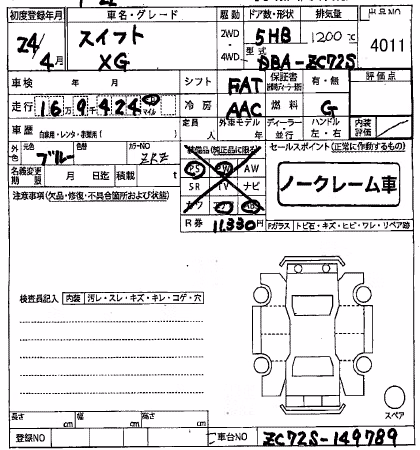 初度登録年月 車名・グレード 駆動 ドア数・形状 排気量 出品NO
24/4月 スイフト XG 2WD 4WD 5HB 1200cc 4011
型式 DBA-ZC72S
車検 年 月 シフト FAT 保証書 有・無 評価点
走行 16万9千424 マイル 冷房 AAC 燃料 G
車歴 自家用・レンタ・事業用( ) 定員 人 外車モデル 年 ディーラー 並行 ハンドル 左・右 内装評価
外色 元色 ブルー 色替 カラーNO ZKZ 装備品(純正品に限る) セールスポイント(正常に作動するもの)
PS PW AW
名義変更期限 月 日迄 積載 t SR TV ナビ ノークレーム車
注意事項(欠品・修復・不具合箇所および状態) カワ
R券 11,330円 Fガラス トビ石・キズ・ヒビ・ワレ・リペア跡
検査員記入 内装 汚レ・スレ・キズ・キレ・コゲ・穴
スペア
長さ cm 幅 cm 高さ cm
登録NO 車台NO ZC72S-149789